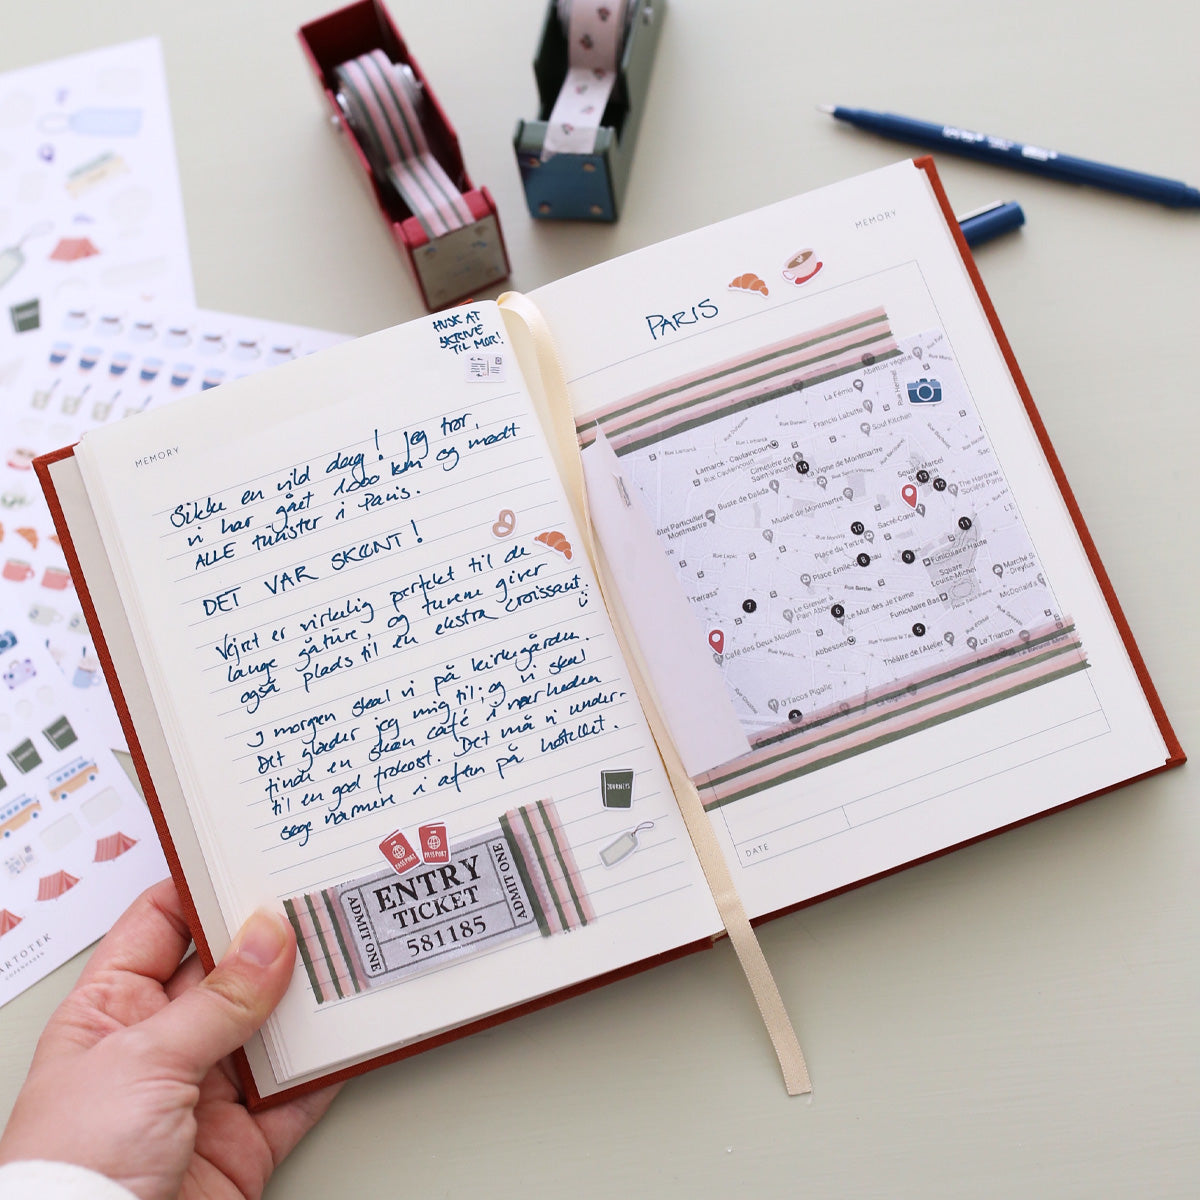 HUSK AT
SKRIVE
TIL MOR!
MEMORY
Sikke en vild dag! Jeg tror,
vi har gået 1.000 km og mødt
ALLE turister i Paris.
DET VAR SKØNT!
Vejret er virkelig perfekt til de
lange gåture, og turene giver
også plads til en ekstra croissant.
I morgen skal vi på kirkegården.
Det glæder jeg mig til, og vi skal
finde en skøn café i nærheden
til en god frokost. Det må vi under-
søge nærmere i aften på hotellet.
JOURNEYS
PASSPORT
PASSPORT
ADMIT ONE
ENTRY
TICKET
581185
ADMIT ONE
MEMORY
PARIS
Abattoir végétal
Rue Hermel
La Fémo
Francis Labutte
Soul Kitchen
Rue Lamarck
Rue Lamarck
Lamarck - Caulaincourt
Rue Caulaincourt
Cimetière de
Saint-Vincent
14
Vigne de Montmartre
Rue Saint-Vincent
Square Marcel
13
12
The Hardware
Société Paris
Buste de Dalida
Musée de Montmartre
Hôtel Particulier
Montmartre
Sacré-Cœur
10
11
Place du Tertre
Rue Lepic
8
9
Funiculaire Haute
Place Émile-Goudeau
Square
Louise-Michel
Marché S
Dreyfus
Rue Berthe
Terrass"
7
Le Grenier à
Pain Abbesses
6
Le Mur des Je t'aime
Funiculaire Bas
McDonald's
5
Café des Deux Moulins
Abbesses
Théâtre de l'Atelier
Le Trianon
O'Tacos Pigalle
DATE
ARTOTEK
COPENHAGEN